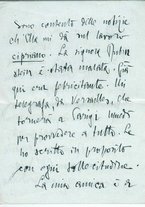 Sono contento delle notizie
che Ella mi dà sul lavoro
cipriano. La signora
è stata malata.
qui era febbricitante. Mi
telegrafa da Versailles, che
tornerà a Parigi lunedì
per provvedere a tutto. Le
ho scritto in proposito
con ogni sollecitudine.
La mia amica è a